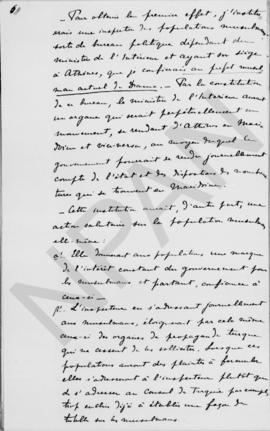 6
— Pour obtenir le premier effet, j'institue-
rais une inspection des populations musulmanes
sorte de bureau politique dépendant du
ministère de l'Intérieur et ayant son siège
à Athènes, que je confierais au préfet musul-
man actuel de Drama. — Par la constitution
de ce bureau, le ministère de l'Intérieur aurait
un organe qui serait perpétuellement en
mouvement, se rendant d'Athènes en Macé-
doine et vice-versa, au moyen duquel le
gouvernement pourrait se rendre journellement
compte de l'état et des dispositions des
turcs qui se trouvent en Macédoine.
— Cette institution aurait, d'autre part, une
action salutaire sur la population musulmane
elle-même :
a: Elle donnerait aux populations une marque
de l'intérêt constant du gouvernement pour
les musulmans et partant, confiance à
ceux-ci —
β: L'inspecteur en s'adressant journellement
aux musulmans, éloignerait par cela même
ceux-ci des organes de propagande turque
qui ne cessent de les solliciter. Lorsque ces
populations auront des plaintes à formuler
elles s'adresseront à l'inspecteur plutôt que
de s'adresser au Consul de Turquie par exemple,
trop enclin déjà à établir une façon de
tutelle sur les musulmans.